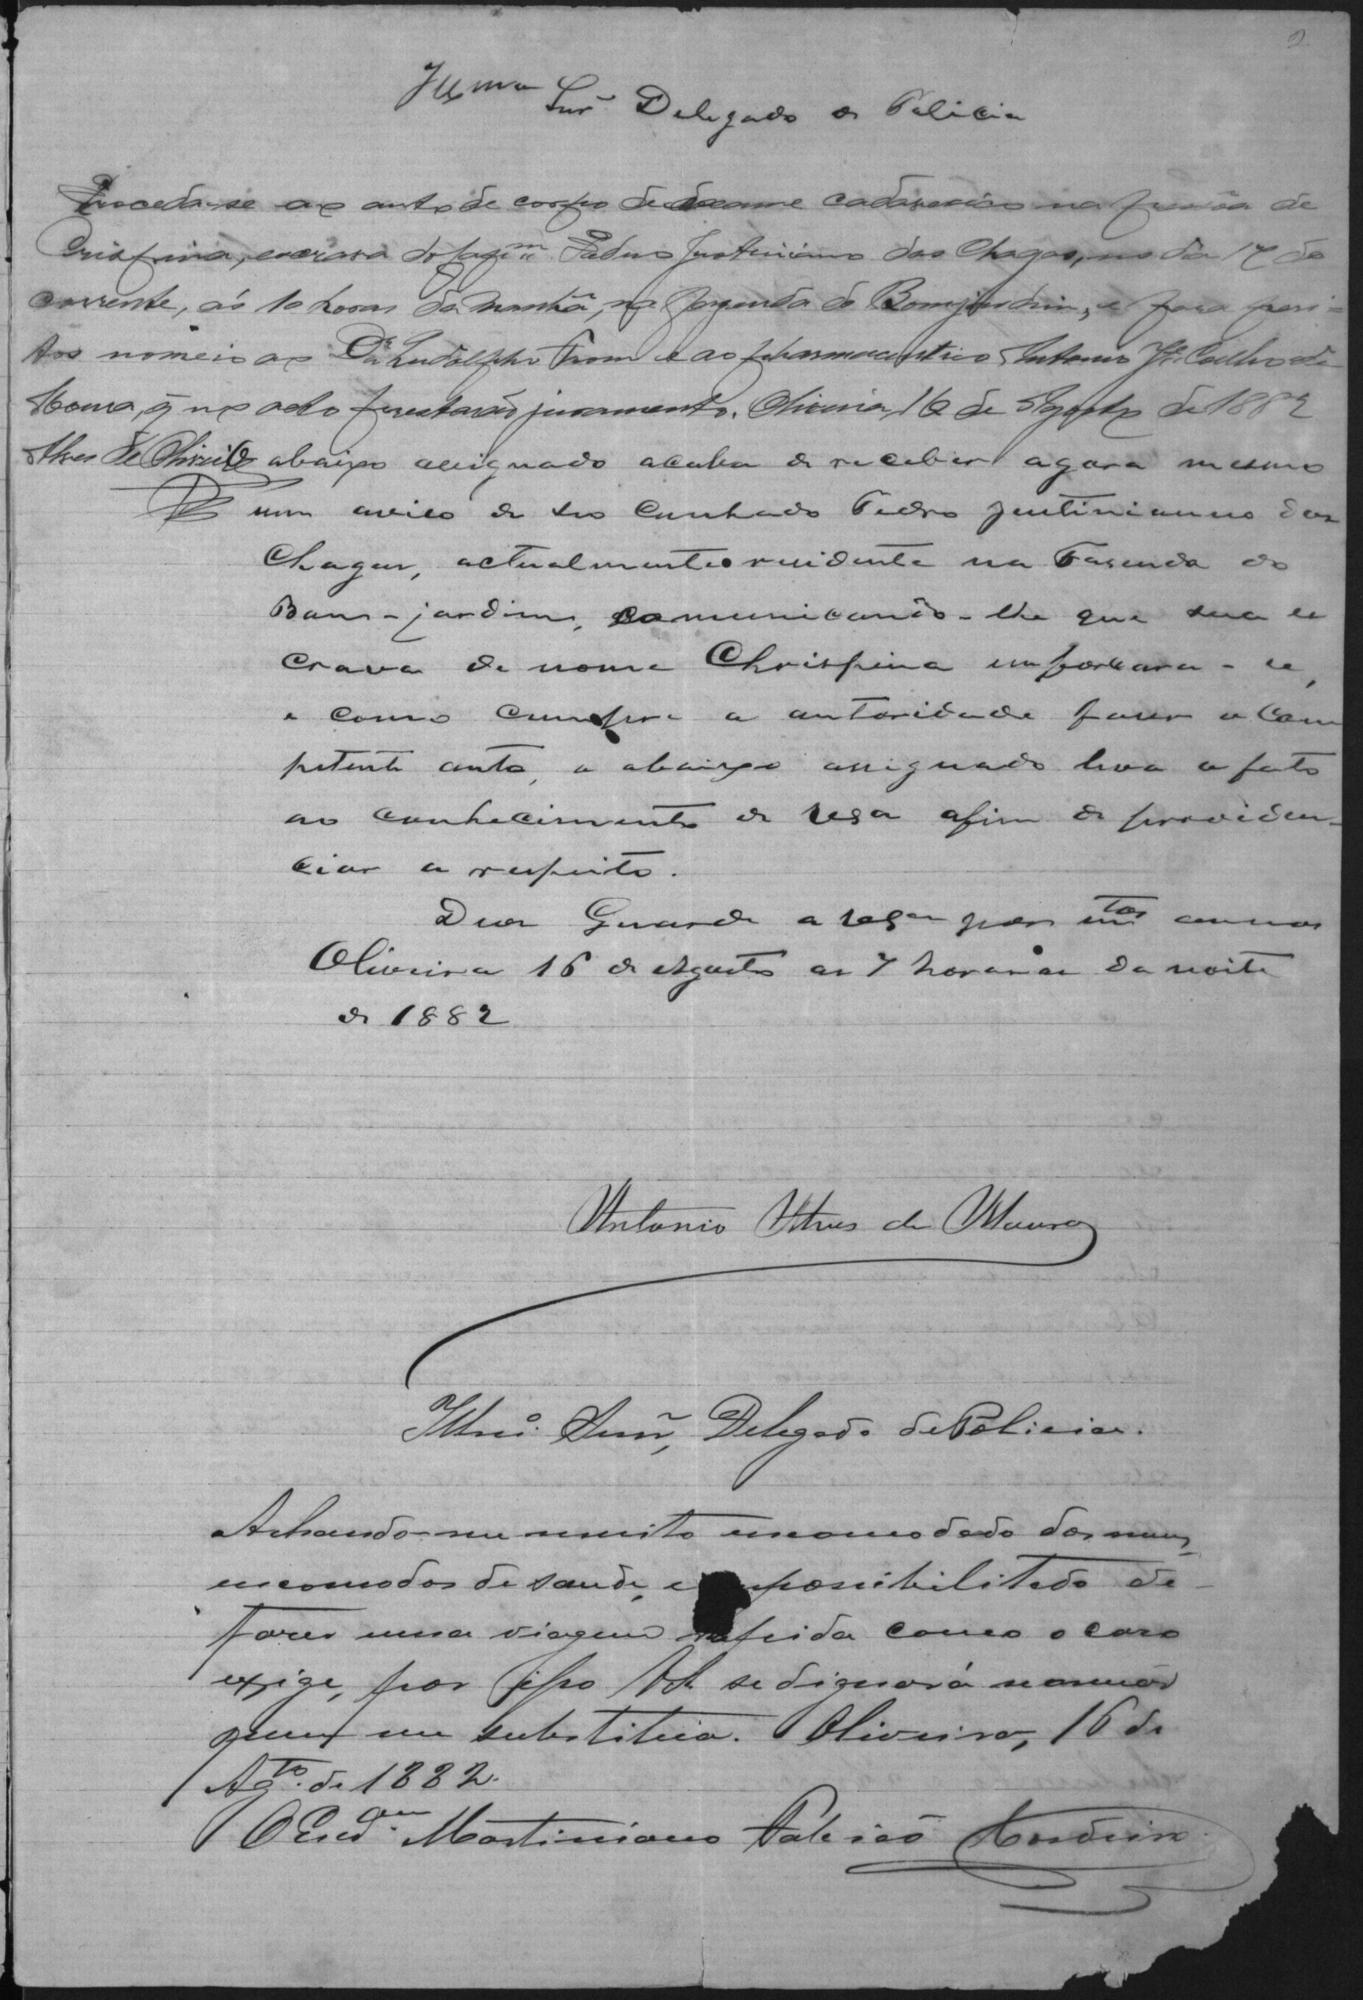 2
Illmo
Snr. Delegado de Policia
Proceda-se ao auto de corpo de exame cadaverico na pessôa de
Crispina, escrava do Pedro Justiniano das Chagas, no dia 17 do
corrente, ás 10 horas da manhã, na fazenda do Bomjardim, e para peri-
tos nomeio ao Dr. Rudolpho e ao pharmaceutico Antonio Je. Coelho de
Moura, q̃ no acto prestarão juramento. Oliveira, 16 de Agosto de 1882
Alves de Oliveira
O abaixo assignado acaba de receber agora mesmo
um aviso de seo cunhado Pedro Justinianno das
Chagas, actualmente residente na Fasenda do
Bom-jardim, comunicando-lhe que sua es
crava de nome Chrispina emforcara-se,
e como cumpre a autoridade faser o com
petente auto, o abaixo assignado leva o fato
ao conhecimento de VSa afim de providen-
ciar a respeito.
Deos Guarde a VSa por mtos annos
Oliveira 16 de Agosto as 7 horas da noite
de 1882
Antonio Alves de Moura
Illmo. Snr. Delegado de Policia.
Achando-me muito encomodado dos meus
encomodos de saude, e impossibilitado de
faser uma viagem rapida como o caso
exige, por isso VS. se dignará nomear
quem me substitua. Oliveira, 16 de
Agto. de 1882.
O Escram. Martiniano Cordeiro